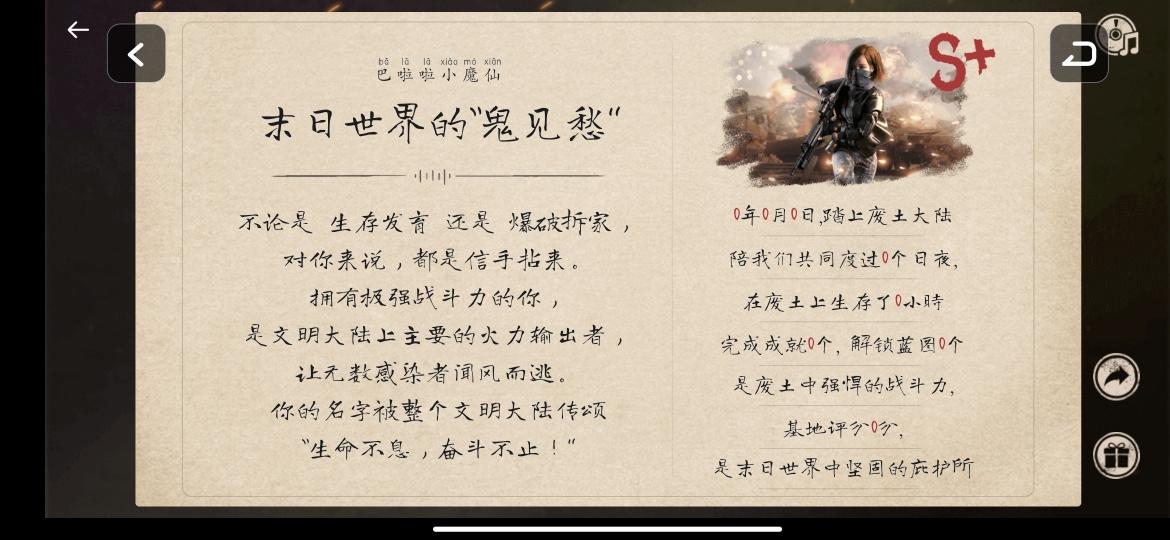 bā lā lā xiǎo mó xiān
巴啦啦小魔仙
末日世界的"鬼见愁"
不论是 生存发育 还是 爆破拆家，
对你来说，都是信手拈来。
拥有极强战斗力的你，
是文明大陆上主要的火力输出者，
让无数感染者闻风而逃。
你的名字被整个文明大陆传颂
"生命不息，奋斗不止！"
S+
0年0月0日,踏上废土大陆
陪我们共同度过0个日夜,
在废土上生存了0小時
完成成就0个, 解锁蓝图0个
是废土中强悍的战斗力,
基地评分0分,
是末日世界中坚固的庇护所